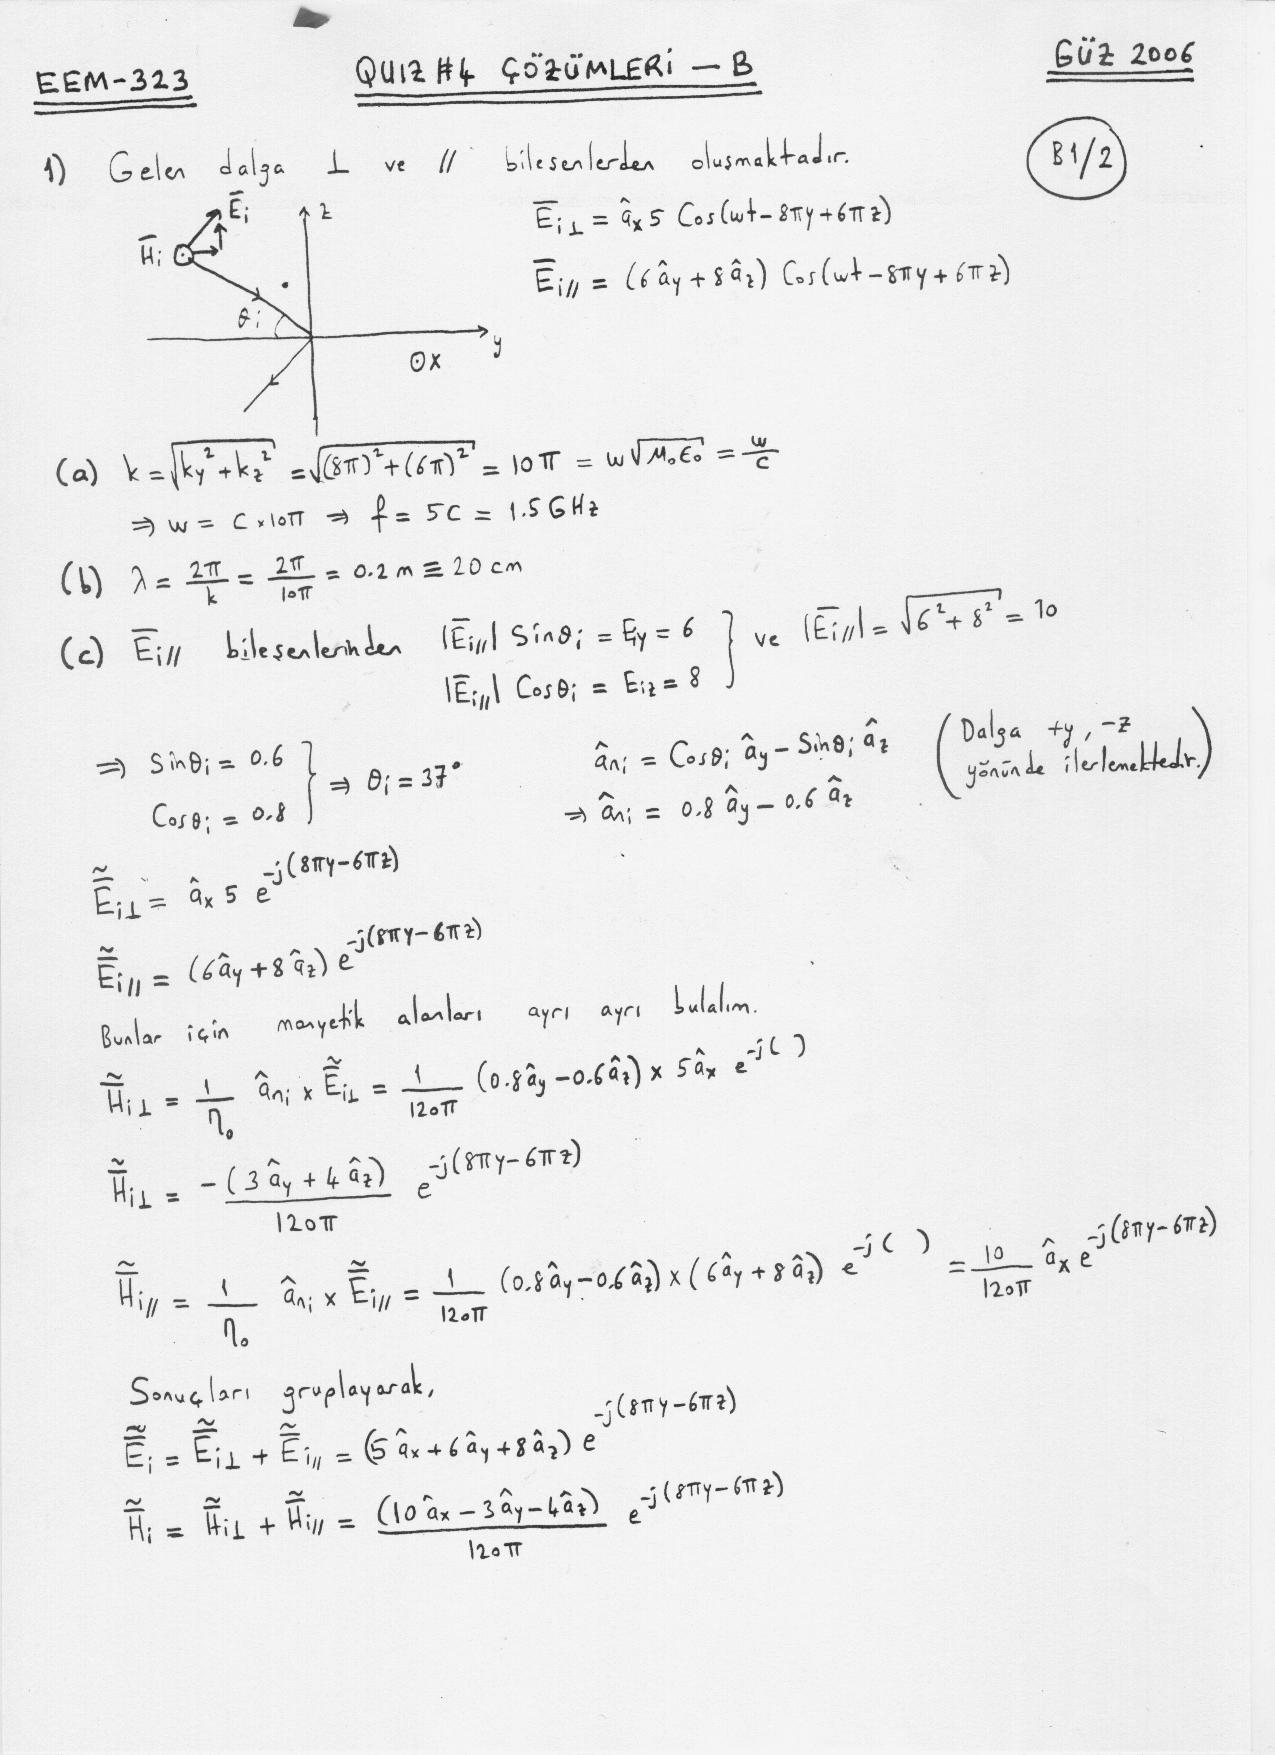 EEM-323
QUIZ #4 ÇÖZÜMLERİ – B
GÜZ 2006
B1/2
1) Gelen dalga ⊥ ve // bileşenlerden oluşmaktadır.
E̅i z
H̅i
θi
y
⊙x
E̅i⊥ = âx 5 Cos(wt-8πy+6πz)
E̅i// = (6ây+8âz) Cos(wt-8πy+6πz)
(a) k = √(ky²+kz²) = √((8π)²+(6π)²) = 10π = w√(μ₀ε₀) = w/c
⇒ w = c×10π ⇒ f = 5c = 1.5 GHz
(b) λ = 2π/k = 2π/10π = 0.2 m ≡ 20 cm
(c) E̅i// bileşenlerinden |E̅i//| Sinθi = Eiy = 6
|E̅i//| Cosθi = Eiz = 8 } ve |E̅i//| = √(6²+8²) = 10
⇒ Sinθi = 0.6
Cosθi = 0.8 } ⇒ θi = 37°
âni = Cosθi ây – Sinθi âz
⇒ âni = 0.8 ây – 0.6 âz
(Dalga +y, -z
yönünde ilerlemektedir.)
Ẽ̅i⊥ = âx 5 e^-j(8πy-6πz)
Ẽ̅i// = (6ây+8âz) e^-j(8πy-6πz)
Bunlar için manyetik alanları ayrı ayrı bulalım.
H̃̅i⊥ = 1/η₀ âni × Ẽ̅i⊥ = 1/120π (0.8ây-0.6âz) × 5âx e^-j( )
H̃̅i⊥ = -(3ây+4âz)/120π e^-j(8πy-6πz)
H̃̅i// = 1/η₀ âni × Ẽ̅i// = 1/120π (0.8ây-0.6âz) × (6ây+8âz) e^-j( ) = 10/120π âx e^-j(8πy-6πz)
Sonuçları gruplayarak,
Ẽ̅i = Ẽ̅i⊥ + Ẽ̅i// = (5âx+6ây+8âz) e^-j(8πy-6πz)
H̃̅i = H̃̅i⊥ + H̃̅i// = (10âx-3ây-4âz)/120π e^-j(8πy-6πz)